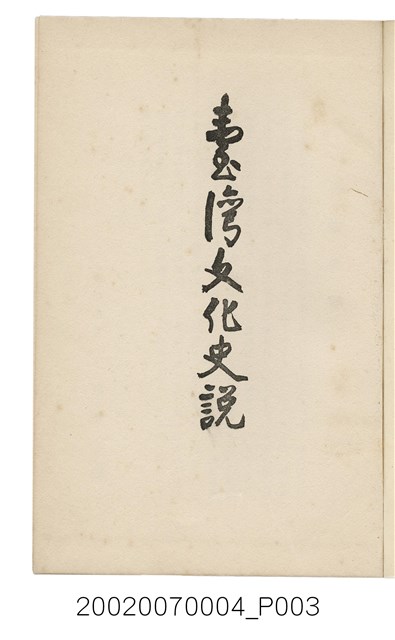 臺灣文化史説
20020070004_P003